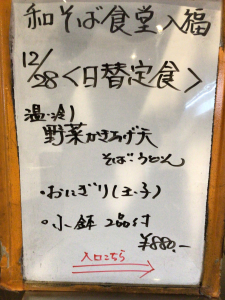 和そば食堂 入福
12/28 <日替定食>
温・冷
野菜かきあげ天
そば・うどん
・おにぎり(玉子)
・小鉢 2品付
¥880.-
入口こちら